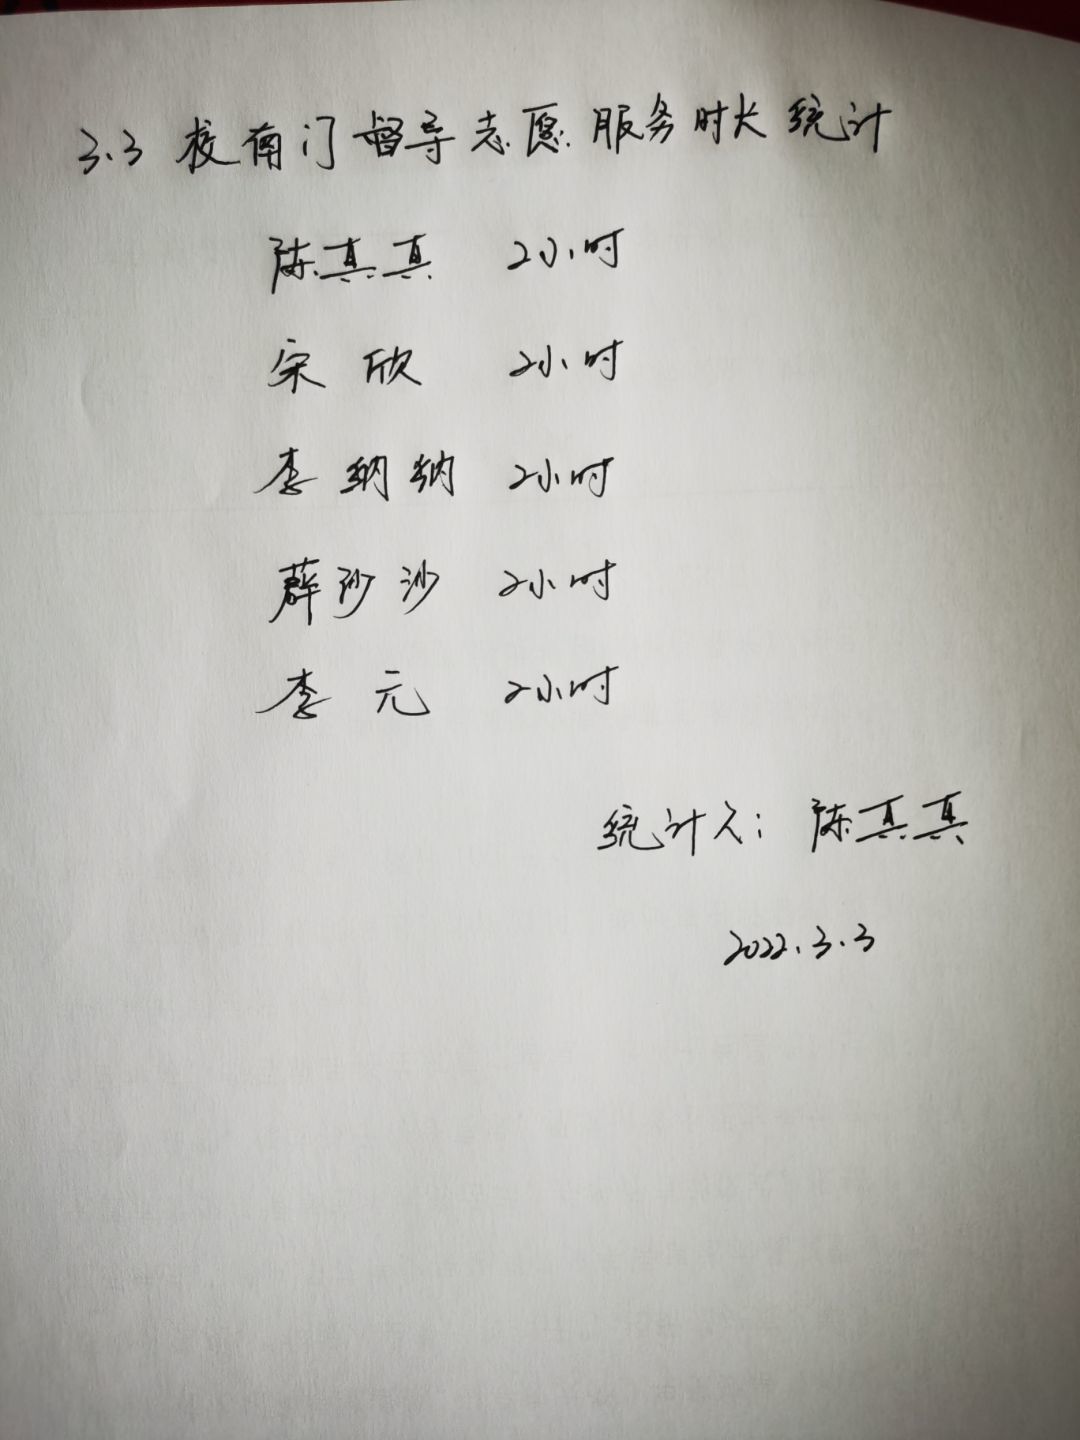 3.3 校南门督导志愿服务时长统计
陈真真 2小时
宋欣 2小时
李纳纳 2小时
薛沙沙 2小时
李元 2小时
统计人：陈真真
2022.3.3